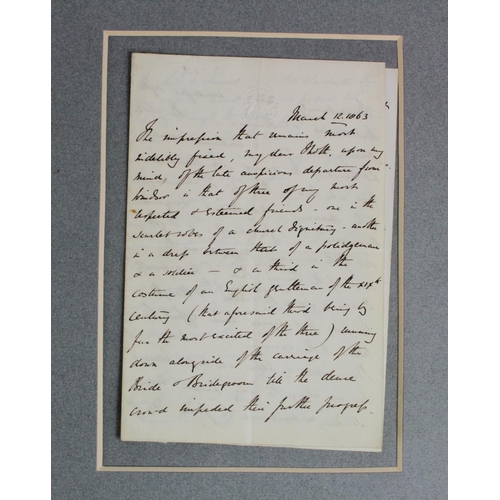 March 12. 1863
The impression that remains most
indelibly fixed, my dear Phott, upon my
mind, of the late auspicious departure from
Windsor is that of three of my most
respected & esteemed friends - one in the
scarlet robes of a church dignitary - another
in a dress between that of a policeman
& a soldier — & a third in the
costume of an English gentleman of the XIXth
century (that aforesaid third being by
far the most excited of the three) running
down alongside of the carriage of the
Bride & Bridegroom till the dense
crowd impeded their further progress.